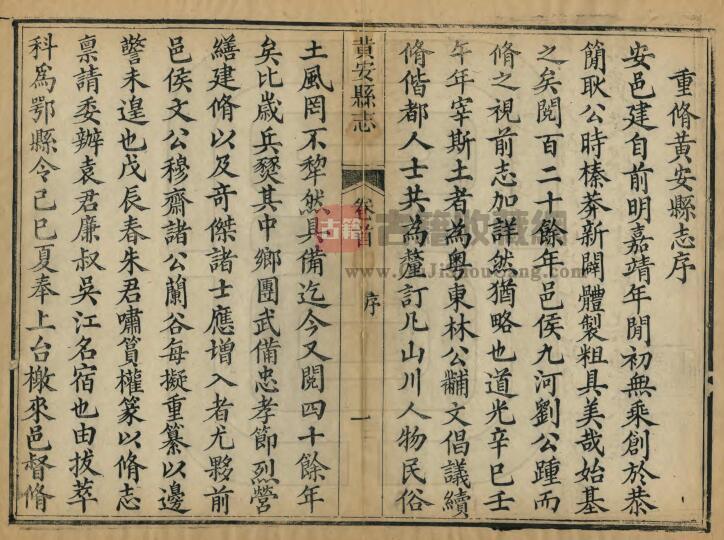 重脩黃安縣志序
安邑建自前明嘉靖年間初無乘創於恭
簡耿公時榛莽新闢體製粗具美哉始基
之矣閱百二十餘年邑侯九河劉公踵而
脩之視前志加詳然猶略也道光辛巳壬
午年宰斯土者為粵東林公黼文倡議續
脩偕都人士共為釐訂凡山川人物民俗
黃安縣志
卷首
序
一
土風罔不犂然具備迄今又閱四十餘年
矣比歲兵燹其中鄉團武備忠孝節烈營
繕建脩以及奇傑諸士應增入者尤夥前
邑侯文公穆齋諸公蘭谷每擬重纂以邊
警未遑也戊辰春朱君嘯篔權篆以脩志
禀請委辦袁君廉叔吳江名宿也由拔萃
科為鄂縣令己巳夏奉上台檄來邑督脩
古籍
古籍收藏網
www.GuJiShouCang.com